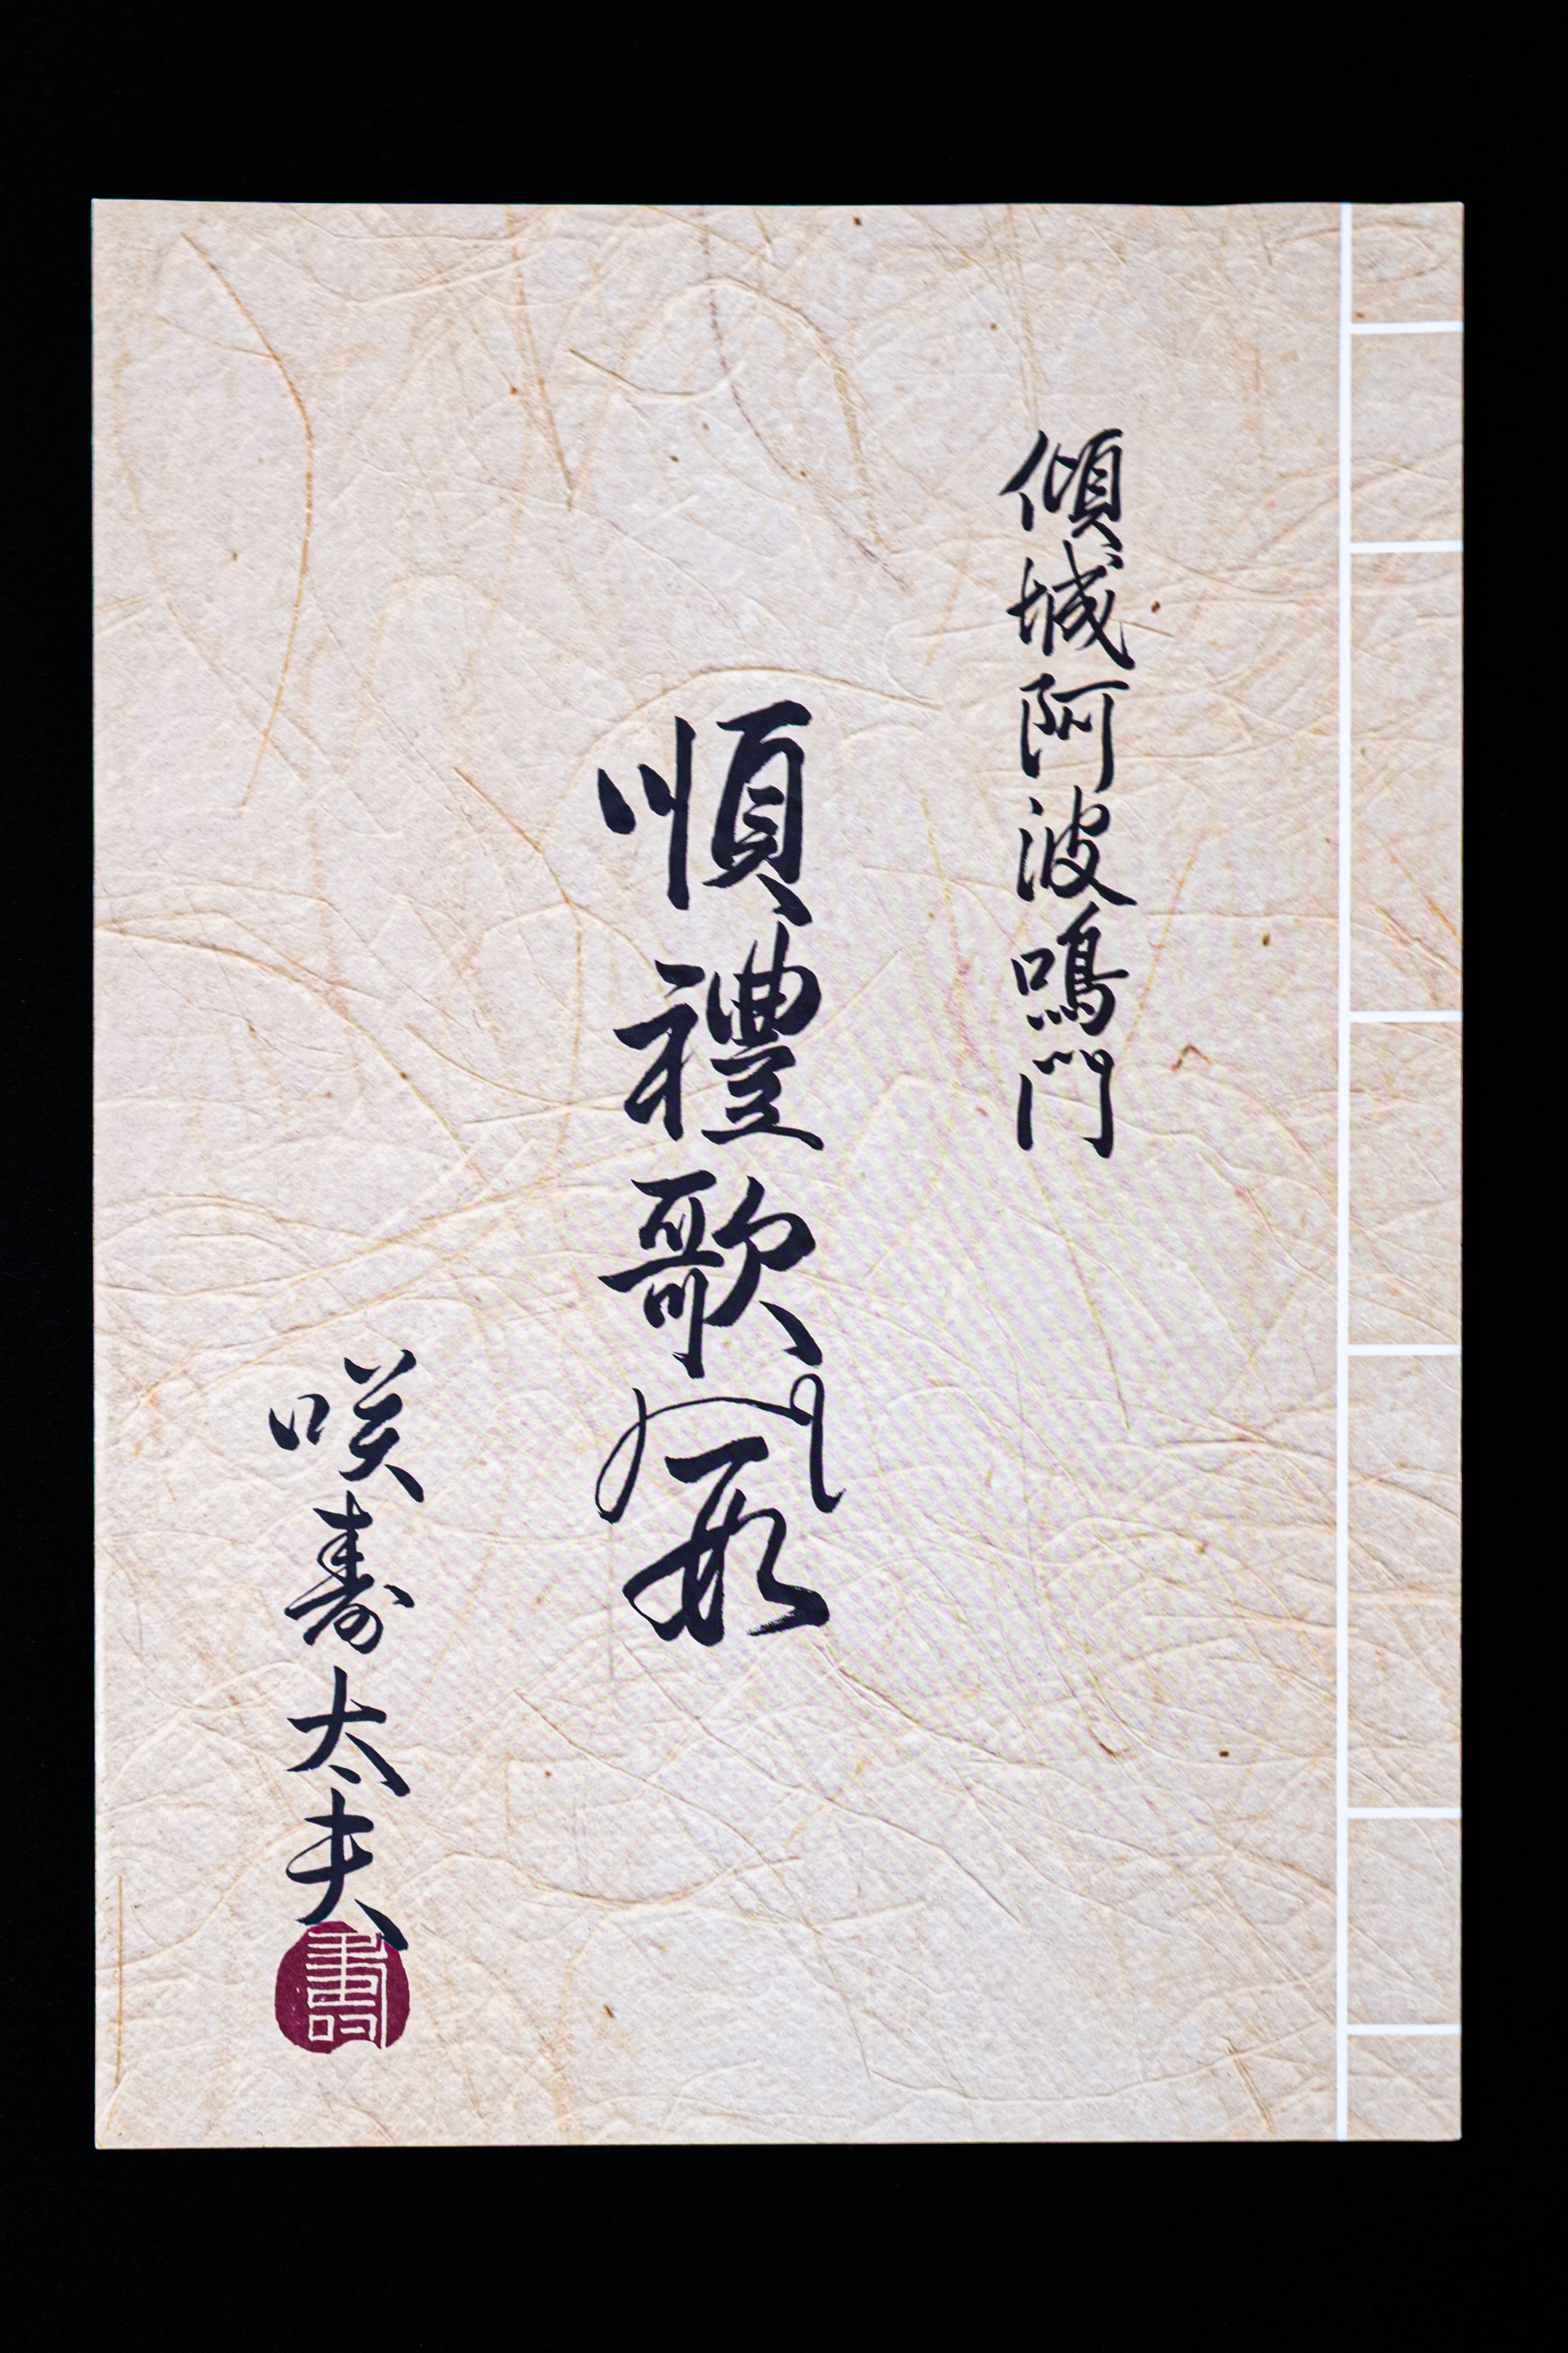 傾城阿波鳴門
順禮歌の段
咲寿太夫
壽